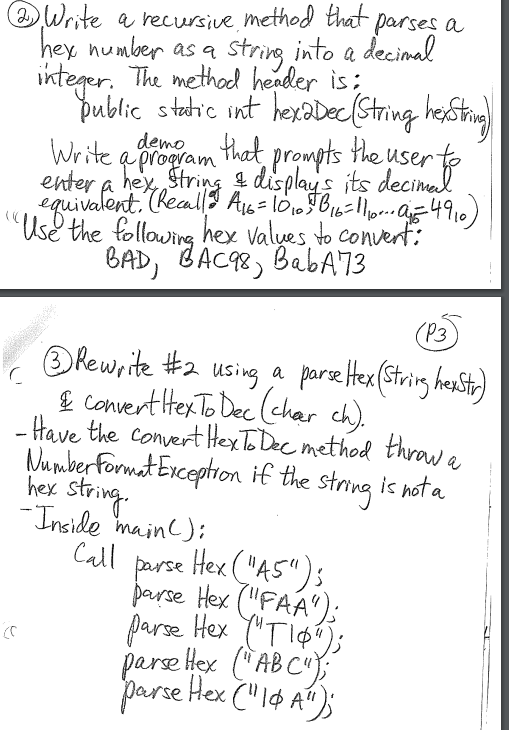 ② Write a recursive method that parses a
hex number as a string into a decimal
integer. The method header is:
public static int hex2Dec(String hexString)
Write a demo program that prompts the user to
enter a hex string & displays its decimal
equivalent. (Recall: A₁₆ = 10₁₀, B₁₆ = 11₁₀...
Use the following hex values to convert:
BAD, BAC98, BabA73
P3
③ Rewrite #2 using a parseHex(String hexStr)
& convertHexToDec(char ch).
- Have the convertHexToDec method throw a
NumberFormatException if the string is not a
hex string.
- Inside main():
Call parseHex("A5");
parseHex("FAA");
parseHex("T1φ");
parseHex("ABC");
parseHex("1φA");